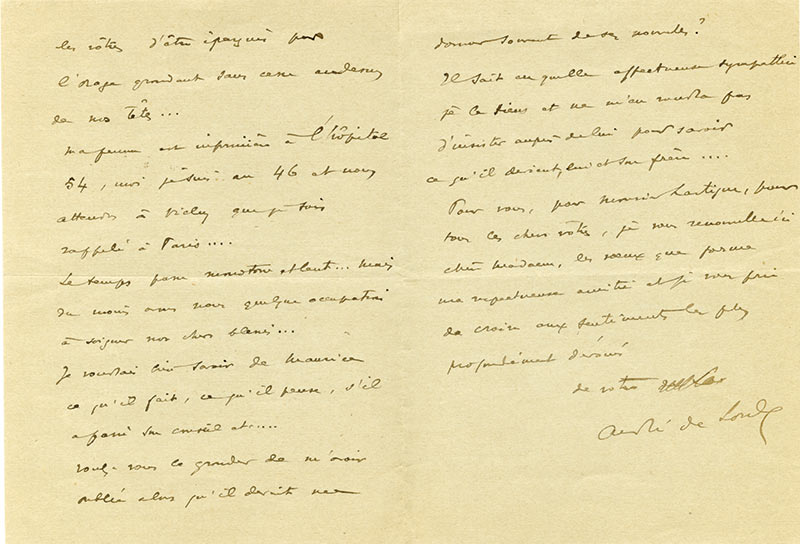 les vôtres d'être épargnés par
l'orage grondant sans cesse au dessus
de nos têtes...
ma femme est infirmière à l'hôpital
54, moi je suis au 46 et nous
attendons à Vichy que je sois
rappelé à Paris....
Le temps passe monotone et lent... mais
du moins avons nous quelque occupation
à soigner nos chers blessés...
Je voudrais bien savoir de Maurice
ce qu'il fait, ce qu'il pense, s'il
a passé son conseil etc....
voulez-vous le gronder de m'avoir
oublié alors qu'il devait me
donner souvent de ses nouvelles?
Il sait en quelle affectueuse sympathie
je le tiens et ne m'en voudra pas
d'insister auprès de lui pour savoir
ce qu'il devient, lui et son frère....
Pour vous, pour Monsieur Lartigue, pour
tous les chers vôtres, je vous renouvelle ici
chère Madame, les vœux que forme
ma respectueuse amitié et je vous prie
de croire aux sentiments les plus
profondément dévoués
de votre
André de